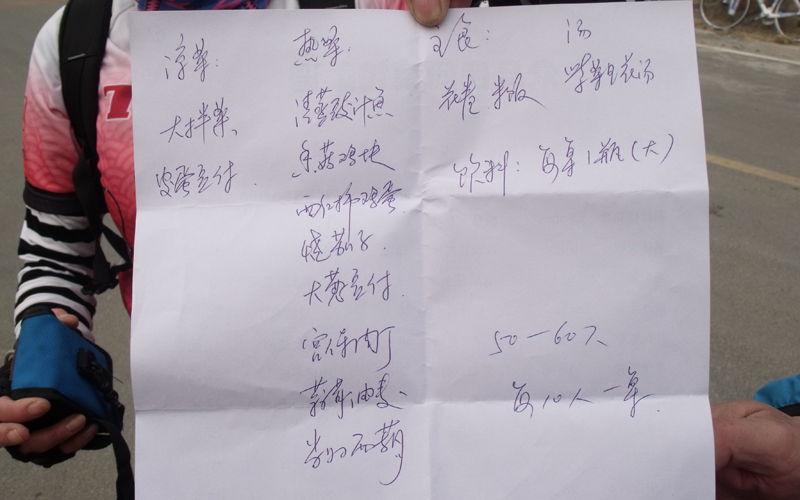 凉菜:
大拌菜、
皮蛋豆付.
热菜:
清蒸豉汁鱼
香菇鸡块
西红柿鸡蛋
烧茄子
大葱豆付.
宫保肉丁
蒜茸油麦
西葫
主食:
花卷 米饭
汤
紫菜旦花汤
饮料: 每桌1瓶(大)
50—60人
每10人一桌.